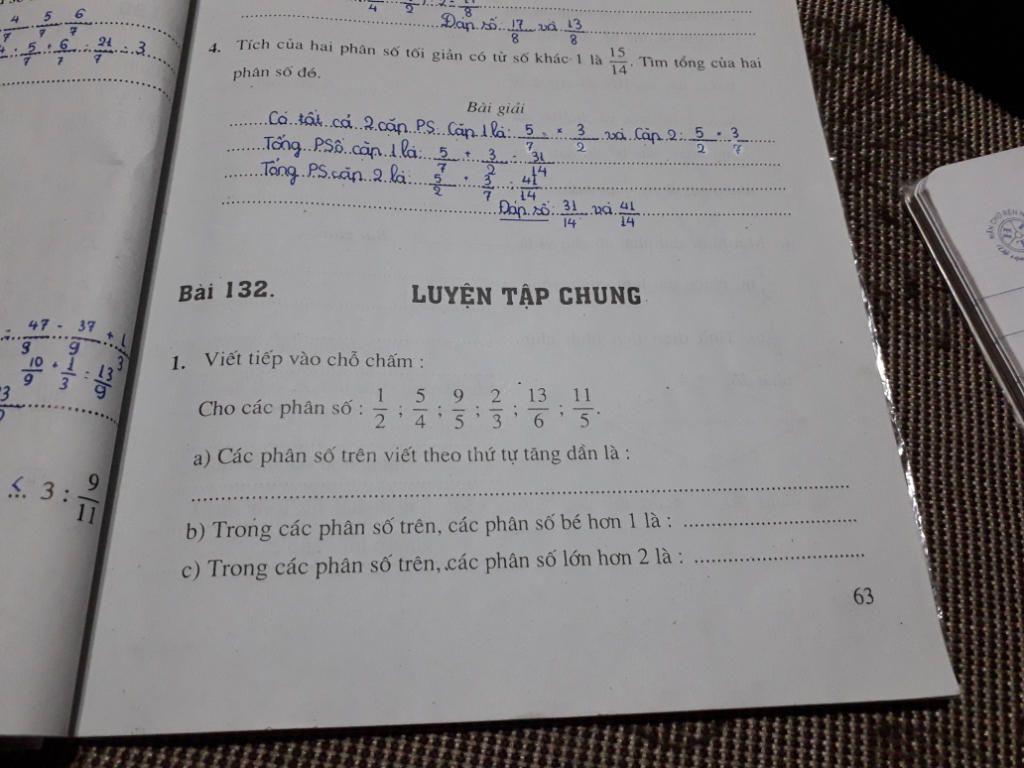 4 5 6
7 7 7
4 + 5 + 6 = 21 = 3
7 7 7
Đáp số 17/8 và 13/8
4. Tích của hai phân số tối giản có tử số khác 1 là 15/14. Tìm tổng của hai
phân số đó.
Bài giải
Có tất cả 2 cặp PS. Cặp 1 là: 5/7 × 3/2 và Cặp 2: 5/2 × 3/7
Tổng PSố cặp 1 là: 5/7 + 3/2 = 31/14
Tổng PS cặp 2 là: 5/2 + 3/7 = 41/14
Đáp số: 31/14 và 41/14
Bài 132. LUYỆN TẬP CHUNG
= 47/9 - 37/9 + 1/3
10/9 + 1/3 = 13/9
1. Viết tiếp vào chỗ chấm :
Cho các phân số : 1/2 ; 5/4 ; 9/5 ; 2/3 ; 13/6 ; 11/5.
a) Các phân số trên viết theo thứ tự tăng dần là :
< 3 : 9/11
b) Trong các phân số trên, các phân số bé hơn 1 là :
c) Trong các phân số trên, các phân số lớn hơn 2 là :
63